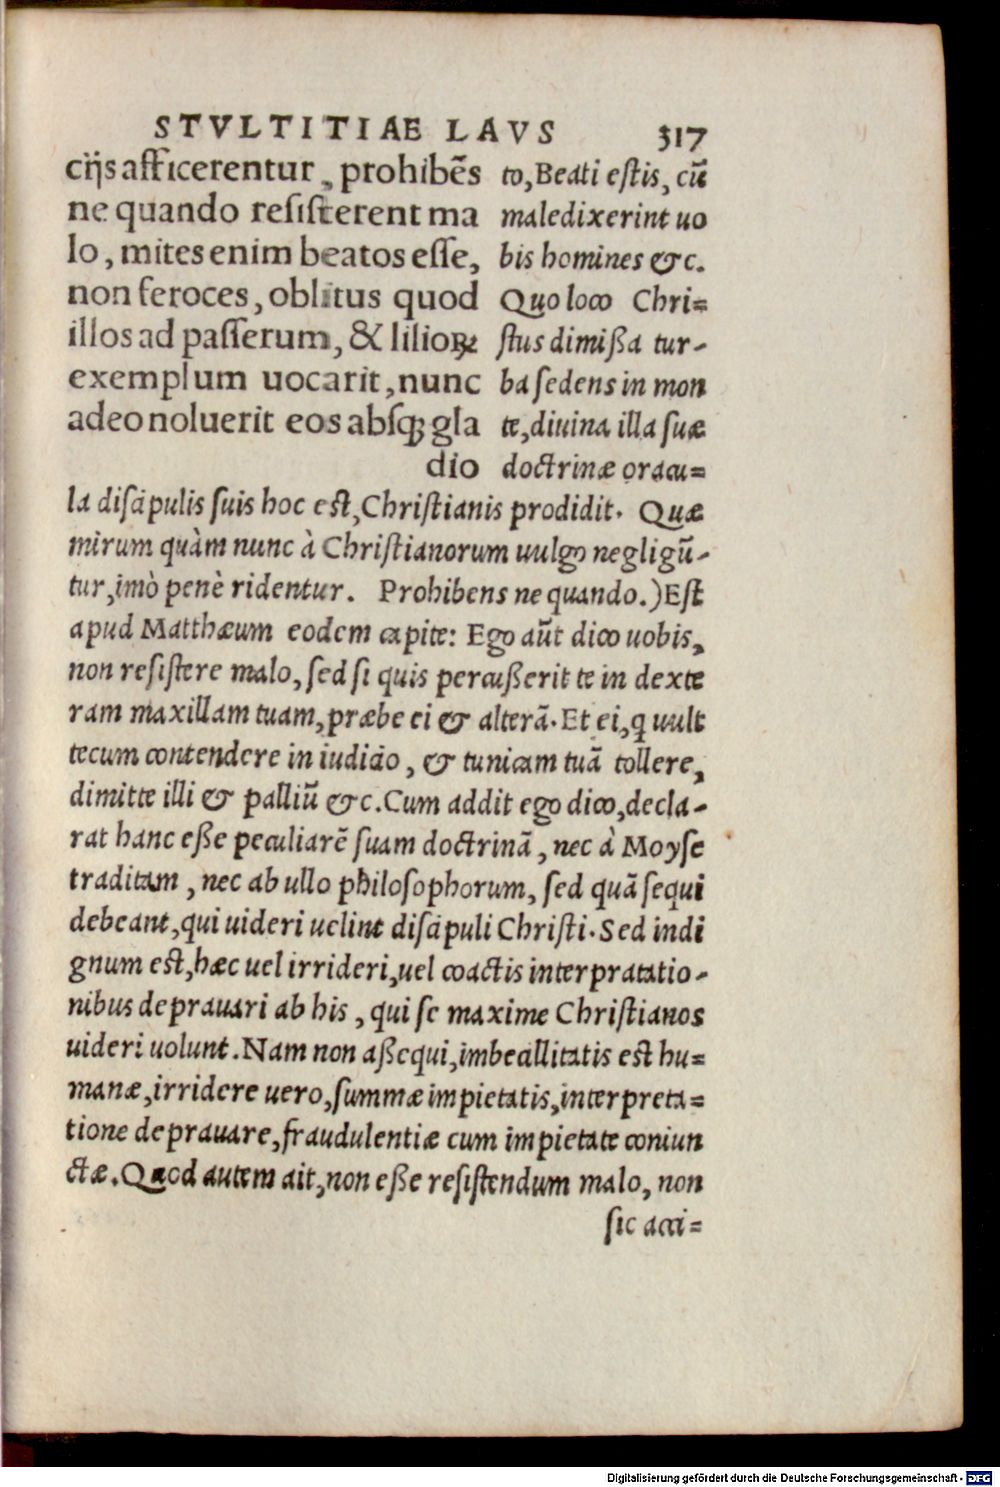 STVLTITIAE LAVS 317
cijs afficerentur, prohibẽs
ne quando resisterent ma
lo, mites enim beatos esse,
non feroces, oblitus quod
illos ad passerum, & lilioꝝ
exemplum uocarit, nunc
adeo noluerit eos absqꝫ gla
dio
to, Beati estis, cũ
maledixerint uo
bis homines &c.
Quo loco Chri=
stus dimißa tur-
ba sedens in mon
te, diuina illa suæ
doctrinæ oracu=
la discipulis suis hoc est, Christianis prodidit. Quæ
mirum quàm nunc à Christianorum uulgo negligũ-
tur, imò penè ridentur. Prohibens ne quando.) Est
apud Matthæum eodem capite: Ego aũt dico uobis,
non resistere malo, sed si quis percußerit te in dexte
ram maxillam tuam, præbe ei & alterã. Et ei, q uult
tecum contendere in iudicio, & tunicam tuã tollere,
dimitte illi & palliũ &c. Cum addit ego dico, decla-
rat hanc eße peculiarẽ suam doctrinã, nec à Moyse
traditam, nec ab ullo philosophorum, sed quã sequi
debeant, qui uideri uelint discipuli Christi. Sed indi
gnum est, hæc uel irrideri, uel coactis interpratatio-
nibus deprauari ab his, qui se maxime Christianos
uideri uolunt. Nam non aßequi, imbecillitatis est hu=
manæ, irridere uero, summæ impietatis, interpreta=
tione deprauare, fraudulentiæ cum impietate coniun
ctæ. Quod autem ait, non eße resistendum malo, non
sic acci=
Digitalisierung gefördert durch die Deutsche Forschungsgemeinschaft - DFG